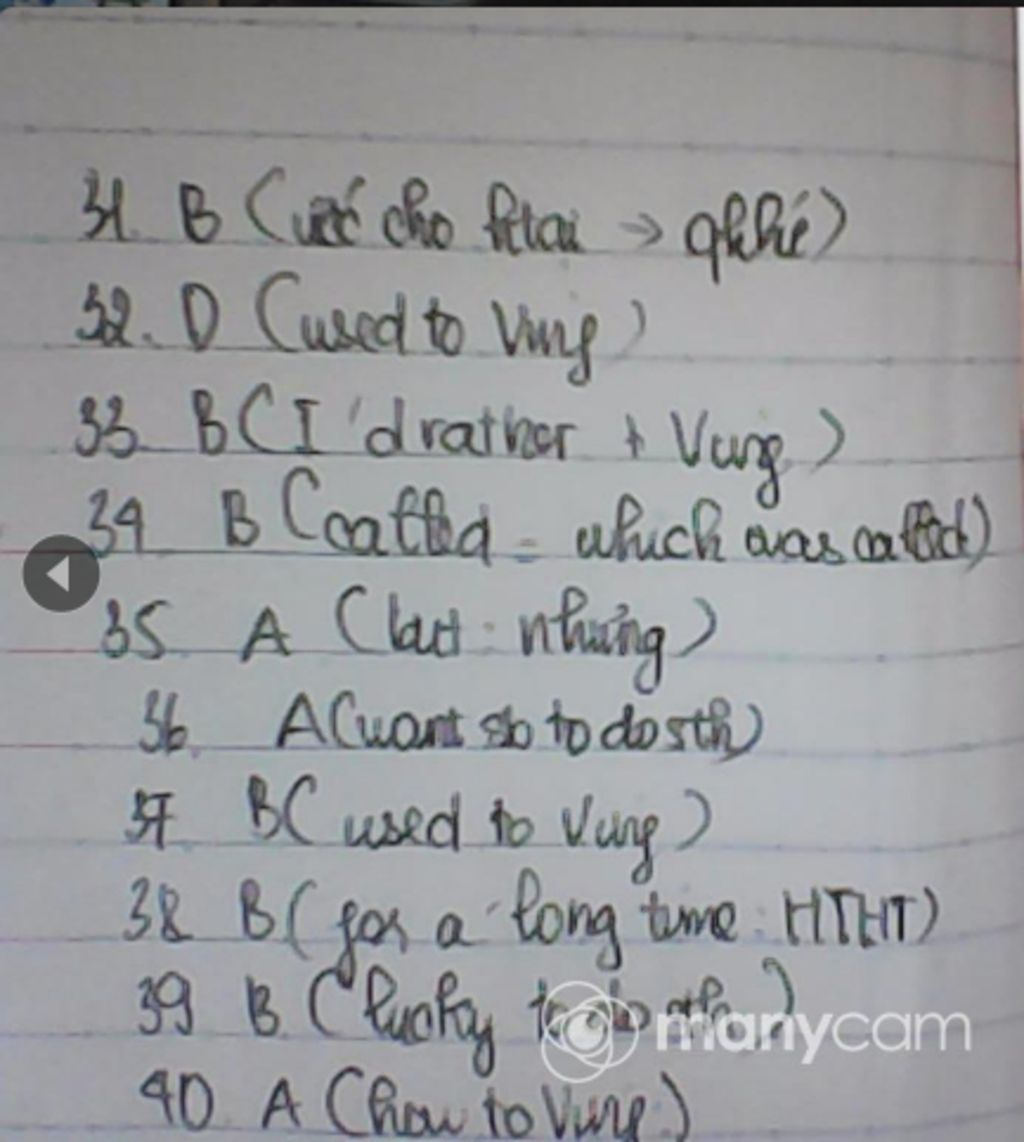 31. B (ước cho htai → qkhứ)
32. D (used to Ving)
33 B (I'd rather + Vung)
34 B (called = which was called)
35 A (but : nhưng)
36. A (want sb to do sth)
37 B ( used to Vung )
38 B ( for a long time : HTHT)
39 B. ( lucky to do sth )
manycam
40 A (how to Vung )